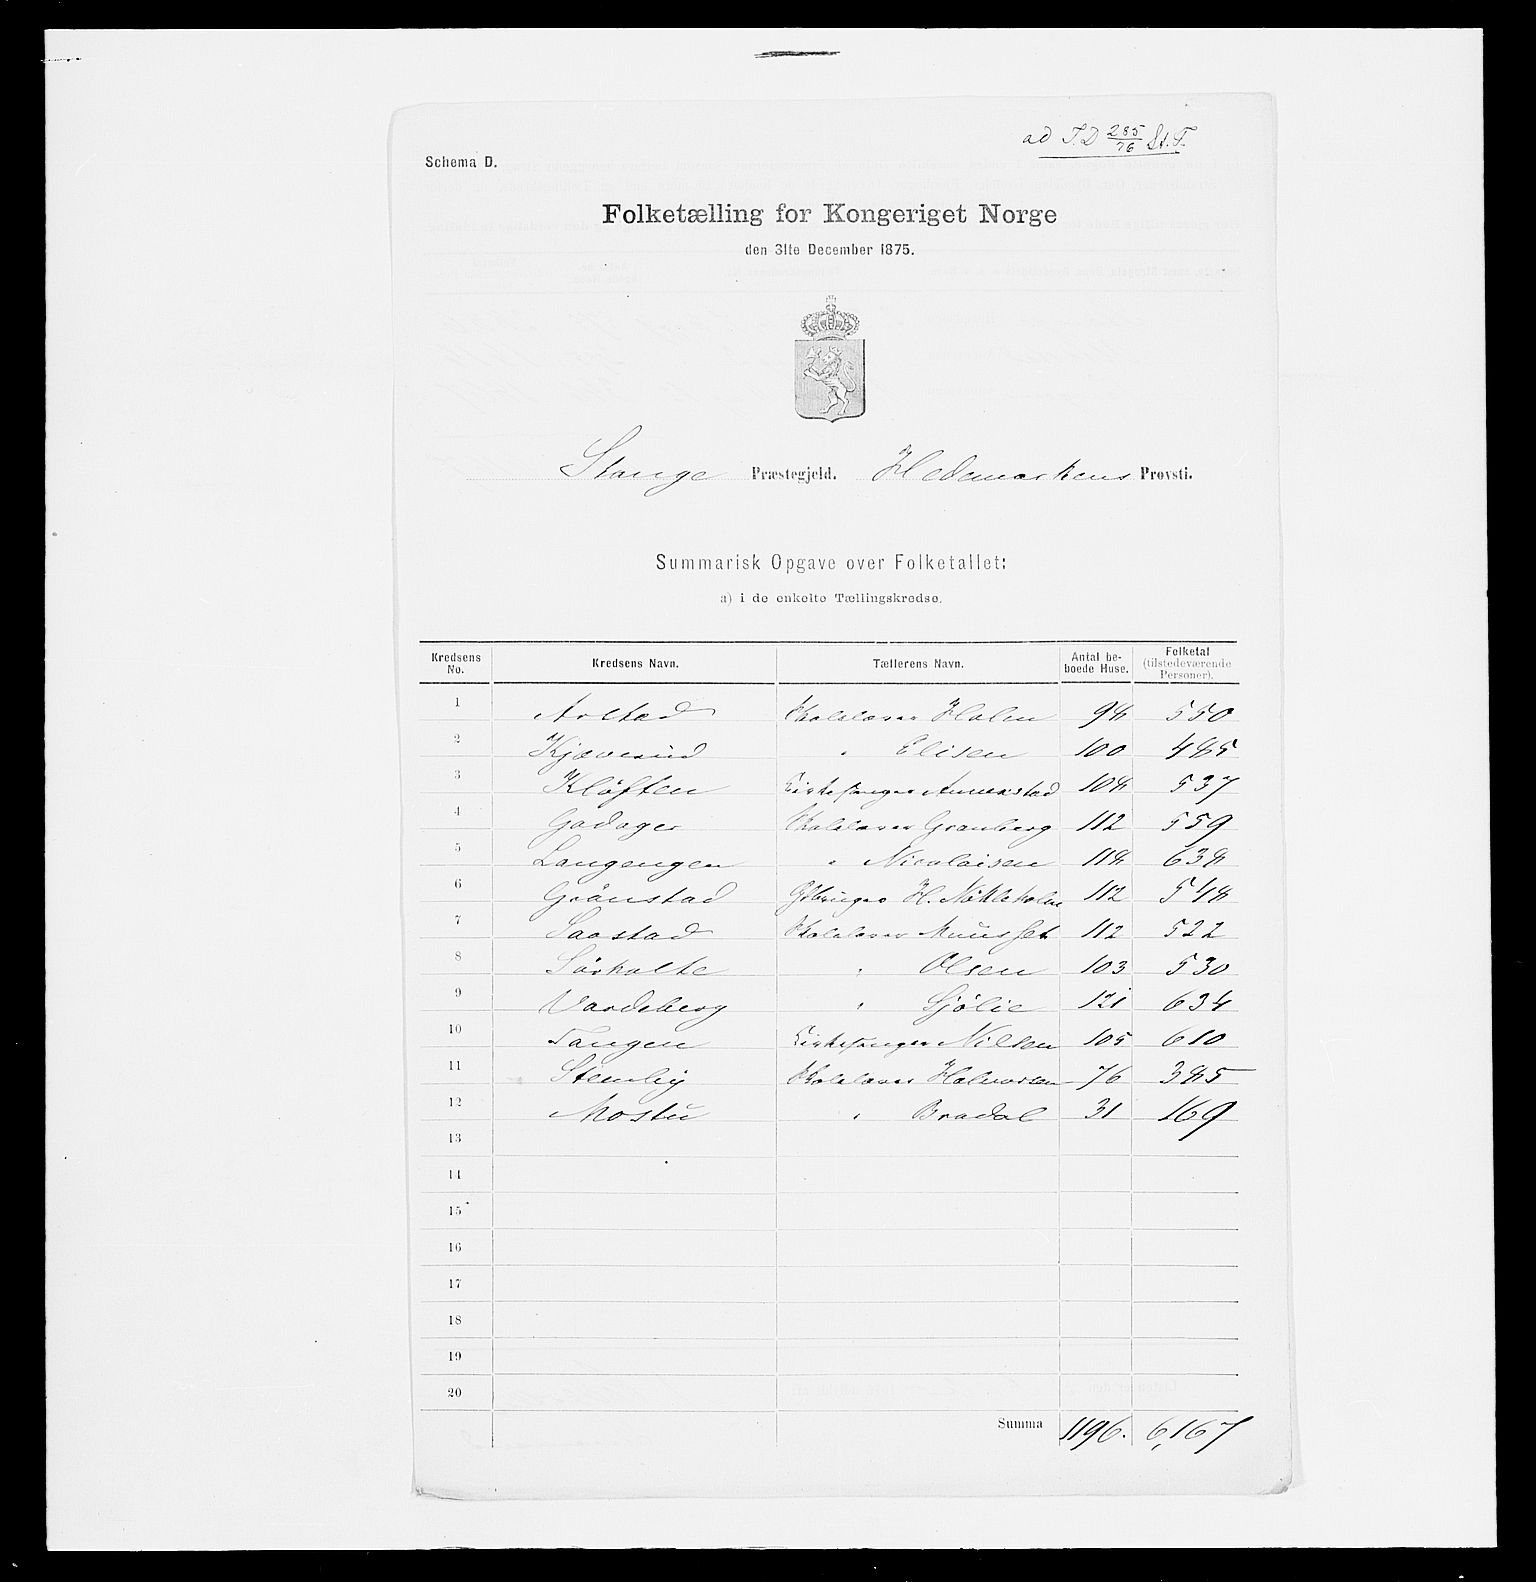 ad T.D 285/76 St. T.
Schema D.
Folketælling for Kongeriget Norge
den 31te December 1875.
Stange Præstegjeld. Hedemarkens Provsti.
Summarisk Opgave over Folketallet:
a) i de enkelte Tællingskredse.
Kredsens No. Kredsens Navn. Tællerens Navn. Antal beboede Huse. Folketal (tilstedeværende Personer).
1 Arstad Skolelærer Holm 98 550
2 Kjæverud " Elisen 100 485
3 Kløften Kirkesanger Annexstad 108 537
4 Godager Skolelærer Granberg 112 559
5 Langengen " Nicolaisen 118 638
6 Grönstad H. Mikkelsholm 112 548
7 Saastad Skolelærer 112 522
8 Sörholte " Olsen 103 530
9 Vardeberg " Sjölie 121 634
10 Tangen Kirkesanger Nilsen 105 610
11 Stenby Skolelærer Halvorsen 76 385
12 Mostu " Bradal 31 169
13
14
15
16
17
18
19
20
Summa 1196. 6,167